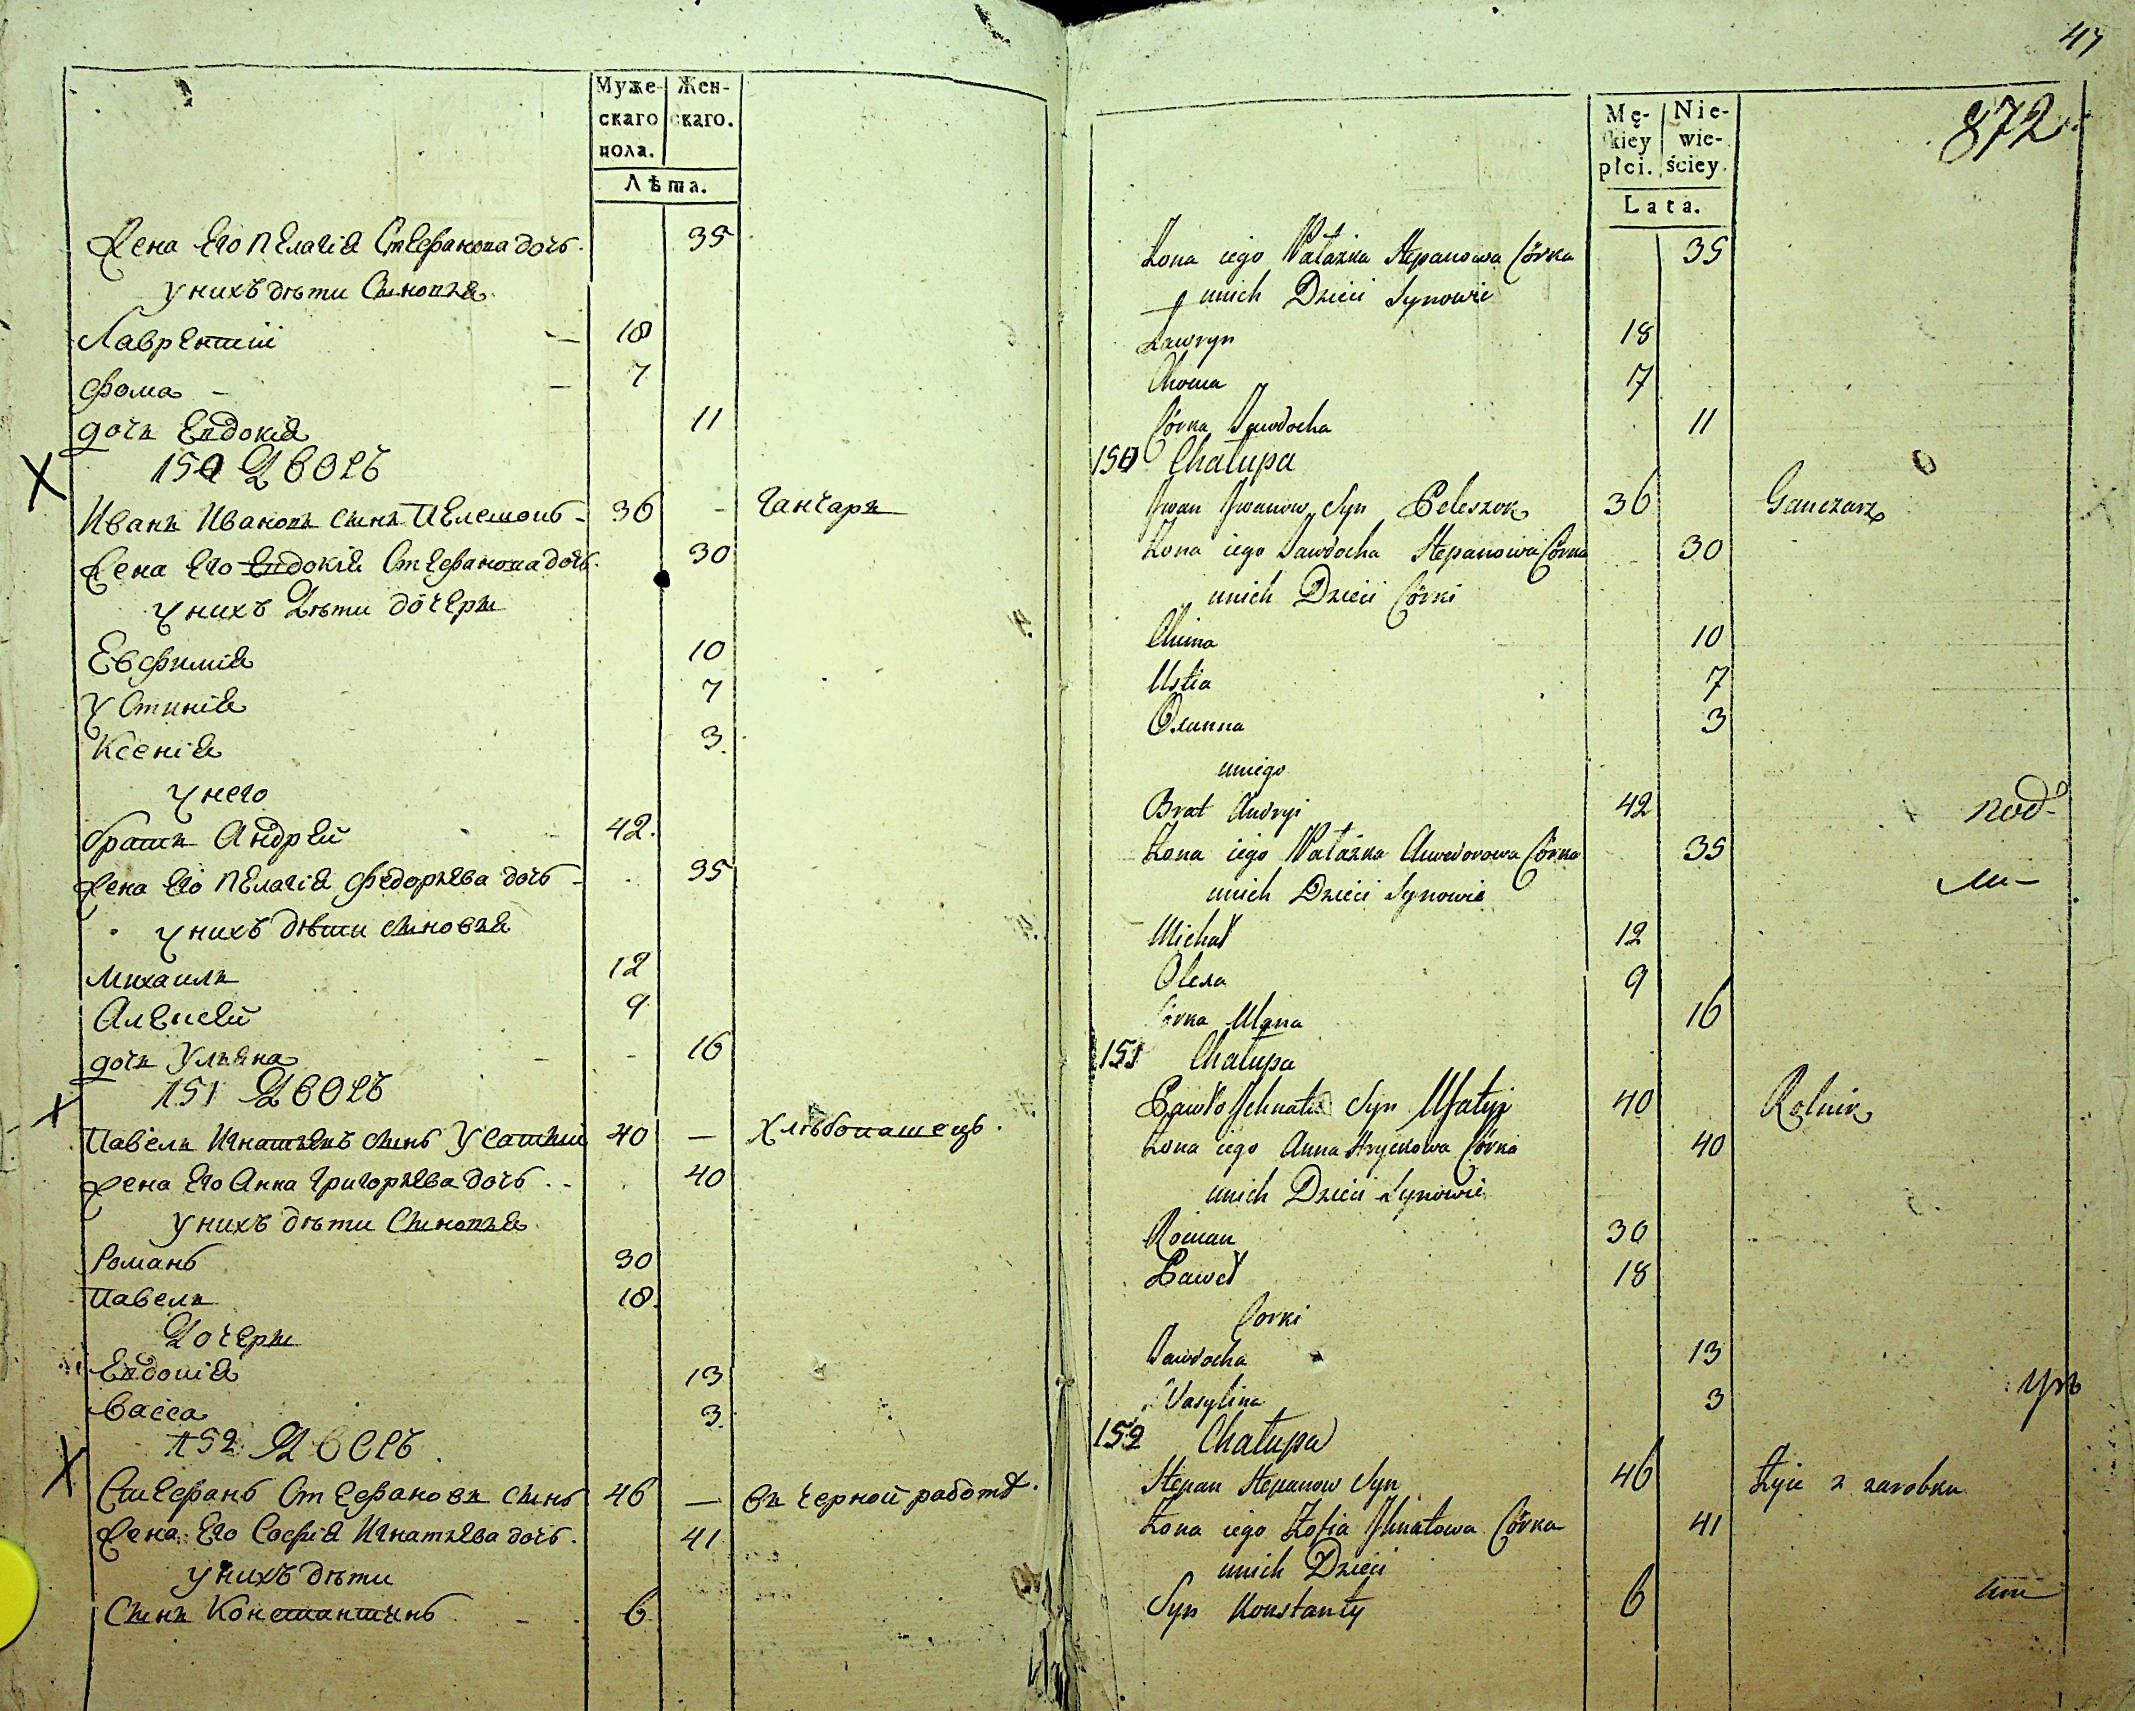 Муже- Жен-
скаго скаго.
пола.
Лѣта.
Жена Его Пелагія Стефанова дочь. 35
у нихъ дѣти Сыновья
Лаврентій — 18
Фома — — 7
дочь Евдокія 11
150 Дворъ
Иванъ Ивановъ сынъ Пелешокъ - 36 - Ганчаръ
Жена Его Евдокія Стефанова дочь. 30
у нихъ Дѣти дочери
Евфимія 10
Устинія 7
Ксенія 3
у него
братъ Андрей 42.
Жена Его Пелагія Федорьева дочь - 35
у нихъ дѣти сыновья
Михаилъ 12
Алексей 9
дочь Ульяна 16
151 Дворъ
Павелъ Игнатьевъ сынъ Усатый 40 — Хлѣбопашецъ.
Жена Его Анна Григорьева дочь 40
у нихъ дѣти Сыновья
Романъ 30
Павелъ 18.
Дочеры
Евдокія 13
Васса 3.
152 Дворъ
Стефанъ Стефановъ сынъ 46 — въ черной работѣ.
Жена Его Софія Игнатьева дочь. 41
у нихъ дѣти
Сынъ Константинъ 6
47
872
Mę- Nie-
skiey wie-
płci. ściey.
Lata.
Żona iego Pałażka Stepanowa Córka 35
unich Dzieci Synowie
Ławryn 18
Choma 7
Córka Jawdocha 11
150 Chałupa
Jwan Jwanow Syn Peleszok 36 Ganczarz
Żona iego Jawdocha Stepanowa Córka 30
unich Dzieci Córki
Chima 10
Ustia 7
Oxanna 3
uniego
Brat Andryi 42
Żona iego Pałażka Chwedorowa Córka 35
unich Dzieci Synowie
Michał 12
Olexa 9
Córka Ulana 16
151 Chałupa
Pawło Jchnatow Syn Usatyi 40 Rolnik
Żona iego Anna Hryckowa Córka 40
unich Dzieci Synowie
Roman 30
Paweł 18
Corki
Jawdocha 13
Wasylina 3
152 Chałupa
Stepan Stepanow Syn 46 Żyie z zarobku
Żona iego Zofia Jhnatowa Córka 41
unich Dzieci
Syn Konstanty 6